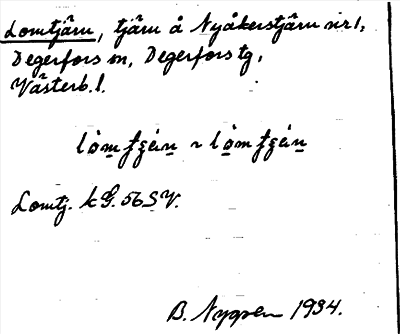 Lomtjärn, tjärn å Nyåkerstjärn nr 1,
Degerfors sn, Degerfors tg,
Västerb. l.
Lomtj. kG. 56 SV.
B. Nygren 1934.